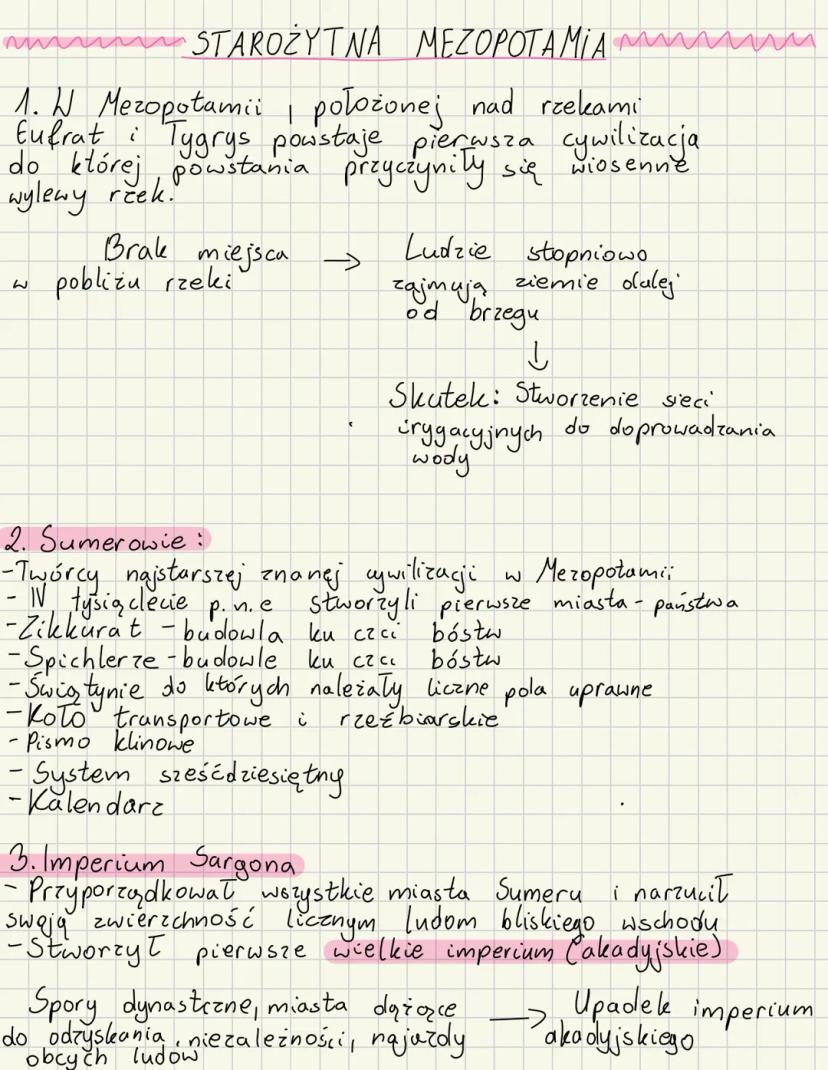 STAROŻYTNA MEZOPOTAMIA
1. W Mezopotamii, położonej nad rzekami
Eufrat i Tygrys powstaje pierwsza cywilizacja
do której powstania przyczyniły się wiosenne
wylewy rzek.
Brak miejsca
w pobliżu rzeki
→
Ludzie stopniowo
zajmują ziemie dalej
od brzegu
↓
Skutek: Stworzenie sieci
irygacyjnych do doprowadzania
wody
2. Sumerowie:
-Twórcy najstarszej znanej cywilizacji w Mezopotamii
- IV tysiąclecie p.n.e stworzyli pierwsze miasta-państwa
-Zikkurat - budowla ku czci bóstw
-Spichlerze - budowle ku czci bóstw
-Świątynie do których należały liczne pola uprawne
-Koło transportowe i rzeźbiarskie
- Pismo klinowe
- System sześćdziesiętny
-Kalendarz
3. Imperium Sargona
- Przyporządkował wszystkie miasta Sumeru i narzucił
swoją zwierzchność licznym ludom bliskiego wschodu
-Stworzył pierwsze wielkie imperium (akadyjskie)
Spory dynastczne, miasta dążące
do odzyskania niezależności, najazdy
obcych ludów
→
Upadek imperium
akadyjskiego